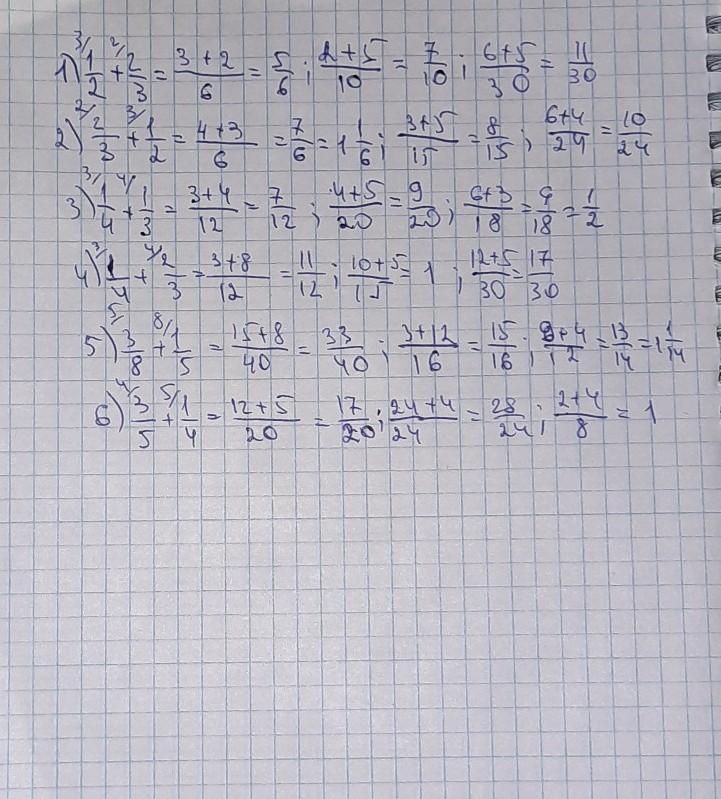 1) 3/ 1/2 + 2/ 2/3 = (3+2)/6 = 5/6 ; (2+5)/10 = 7/10 ; (6+5)/30 = 11/30
2) 2/ 2/3 + 3/ 1/2 = (4+3)/6 = 7/6 = 1 1/6 ; (3+5)/15 = 8/15 ; (6+4)/24 = 10/24
3) 3/ 1/4 + 4/ 1/3 = (3+4)/12 = 7/12 ; (4+5)/20 = 9/20 ; (6+3)/18 = 9/18 = 1/2
4) 3/ 1/4 + 4/ 2/3 = (3+8)/12 = 11/12 ; (10+5)/15 = 1 ; (12+5)/30 = 17/30
5) 5/ 3/8 + 8/ 1/5 = (15+8)/40 = 33/40 ; (3+12)/16 = 15/16 ; (9+4)/12 = 13/14 = 1 1/14
6) 4/ 3/5 + 5/ 1/4 = (12+5)/20 = 17/20 ; (24+4)/24 = 28/24 ; (2+4)/8 = 1